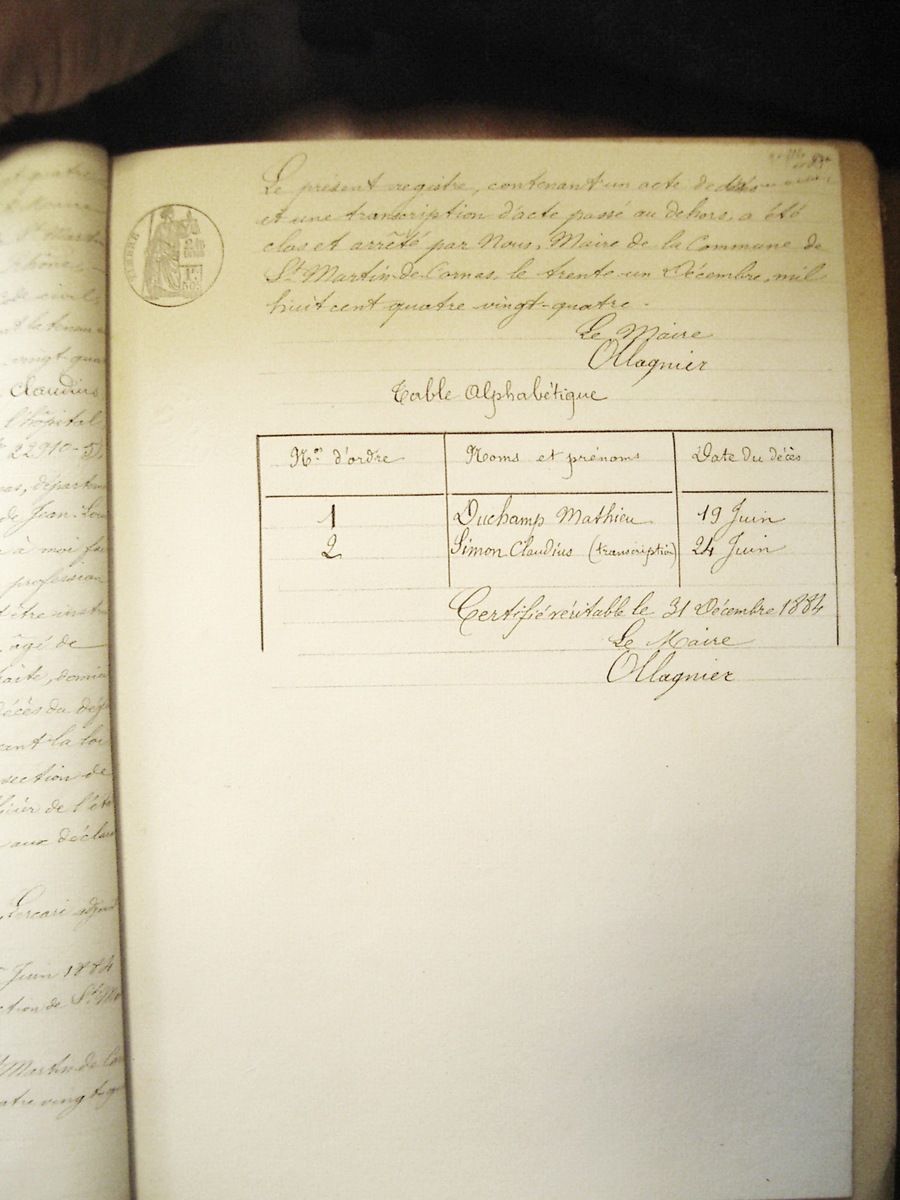 Le présent registre, contenant un acte de décès
et une transcription d'acte passé au dehors, a été
clos et arrêté par Nous, Maire de la Commune de
St Martin-de-Cornas, le trente-un Décembre, mil
huit cent quatre vingt-quatre.
Le Maire
Ollagnier
Table Alphabétique
Nos d'ordre Noms et prénoms Date du décès
1 Duchamp Mathieu 19 Juin
2 Simon Claudius (transcription) 24 Juin
Certifié véritable le 31 Décembre 1884
Le Maire
Ollagnier
quatre
St Martin
Rhône,
civil,
la tenue
vingt-qua
Claudius
l'hôpital
22910-5
départem
de Jean-Lou
à moi fai
profession
être
âgé de
domi
décès du déf
la loi
section de
de l'ét
aux déclar
Juin 1884
St M
Martin de Co
vingt-q